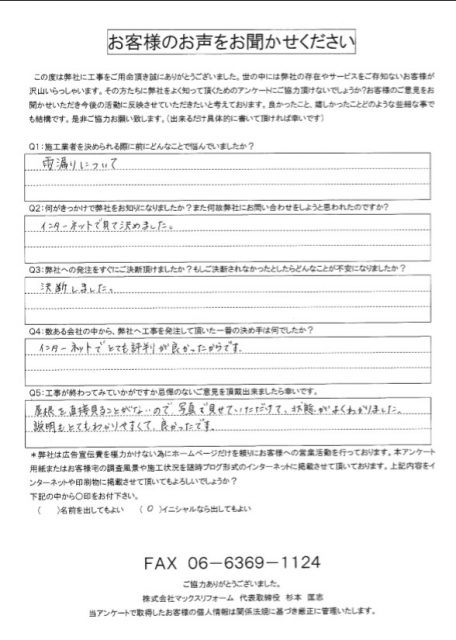 お客様のお声をお聞かせください
この度は弊社に工事をご用命頂き誠にありがとうございました。世の中には弊社の存在やサービスをご存知ないお客様が
沢山いらっしゃいます。その方たちに弊社をよく知って頂くためのアンケートにご協力頂けないでしょうか？お客様のご意見をお
聞かせいただき今後の活動に反映させていただきたいと考えております。良かったこと、嬉しかったことどのような些細な事で
も結構です。是非ご協力お願い致します。（出来るだけ具体的に書いて頂ければ幸いです）
Q1：施工業者を決められる際に前にどんなことで悩んでいましたか？
雨漏りについて
Q2：何がきっかけで弊社をお知りになりましたか？また何故弊社にお問い合わせをしようと思われたのですか？
インターネットで見て決めました。
Q3：弊社への発注をすぐにご決断頂けましたか？もしご決断されなかったとしたらどんなことが不安になりましたか？
決断しました。
Q4：数ある会社の中から、弊社へ工事を発注して頂いた一番の決め手は何でしたか？
インターネットでとても評判が良かったからです。
Q5：工事が終わってみていかがですか忌憚のないご意見を頂戴出来ましたら幸いです。
屋根を直接見ることがないので、写真で見せていただけて、状態がよくわかりました。
説明もとてもわかりやすくて、良かったです。
＊弊社は広告宣伝費を極力かけない為にホームページだけを頼りにお客様への営業活動を行っております。本アンケート
用紙またはお客様宅の調査風景や施工状況を随時ブログ形式のインターネットに掲載させて頂いております。上記内容をイ
ンターネットや印刷物に掲載させて頂いてもよろしいでしょうか？
下記の中から〇印をお付下さい。
（　）名前を出してもよい　（ O ）イニシャルなら出してもよい
FAX 06－6369－1124
ご協力ありがとうございました。
株式会社マックスリフォーム　代表取締役　杉本　匡志
当アンケートで取得したお客様の個人情報は関係法規に基づき厳正に管理いたします。